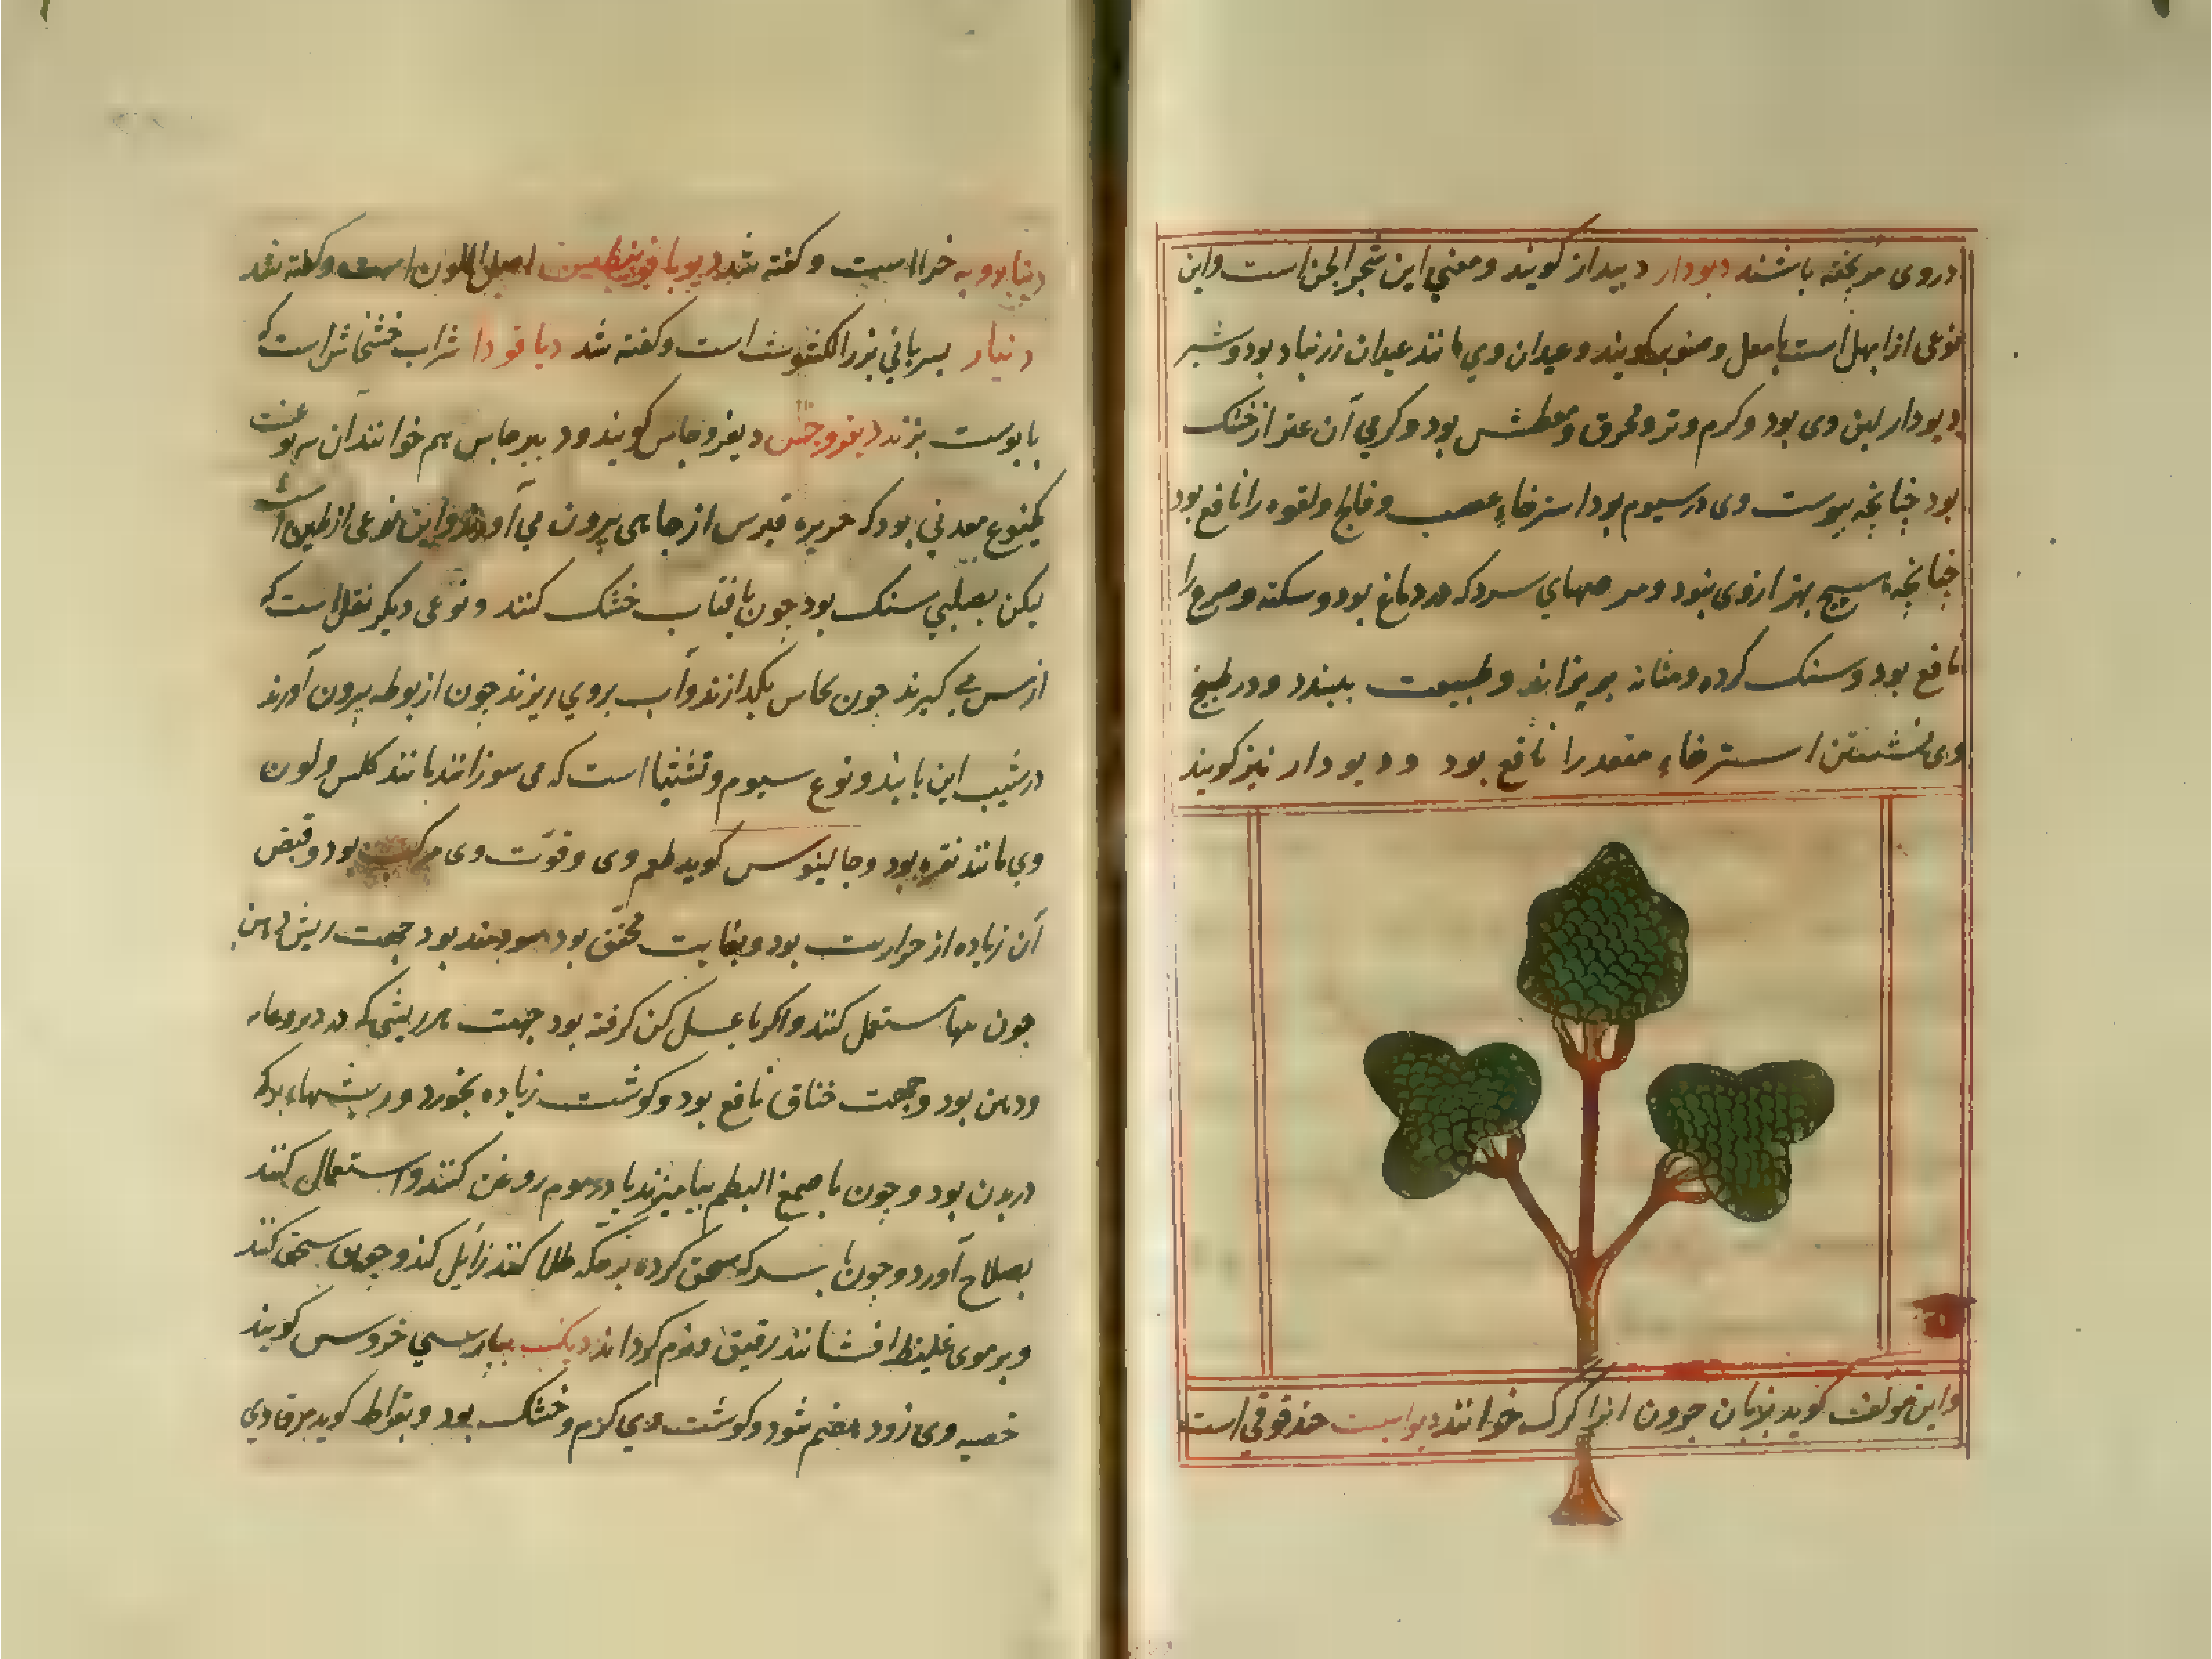 در وی مربخته باشند دیودار دبیداز کویند و معنی این شجر الجن است و این
نوعی از ابهل است با معل و صنوبر کویند و عیدان وی مانند عیدان زرنباد بود و شیر
دیودار لبن وی بود و کرم و تر و محرق و معطش بود و کرمی آن عتر از خشک
بود جنانجه یبوست وی در سیوم بود استرخاء عصب و فالج و لقوه را نافع بود
جنانجه هیچ بهتر از وی نبود و مرضهای سرد که در دماغ بود و سکته و صرع را
نافع بود و سنک کرده و مثانه بریزاند و طبیعت ببندد و در طبیخ
وی نشستن استرخاء مقعد را نافع بود و دیودار نیز کویند
و این مولف کوید بزبان جرون انرا کرک خوانند دیواسبت حندقوقی است
دینابرویه خزا است و کفته شد دیوبا قونبطیس اصیل اللون است و کفته شد
دنیار بسریانی بزر الکشوث است و کفته شد دیاقودا شراب خشخاش است که
با بوست بزند دیفروجس دیفروجاس کویند و دبیرجاس هم خوانند آن سه نوعست
یکنوع معدنی بود که جزیره قبرس از جاهی بیرون می آورند و این نوعی از طین است
لیکن بصلبی سنک بود جون بافتاب خشک کنند و نوعی دیکر ثفل است که
از مس می کیرند جون نحاس بکدازند و آب بروی ریزند جون از بوطه بیرون آورند
در شیب این یابند و نوع سیوم و تشیثا است که می سوزانند مانند کلس و لون
وی مانند نقره بود و جالینوس کوید طعم وی و قوت وی مرکب بود و قبض
آن زیاده از حرارت بود و بغایت مجفف بود سودمند بود جهت ریش دهن
جون تنها مستعمل کنند و اکر با عسل کف کرفته بود جهت هر ریشی که در
ودهن بود و جهت خناق نافع بود و کوشت زیاده بخورد و ریشهاء بد که
در بدن بود و جون با صمغ البطم بیامیزند یا در موم روغن کنند و استعمال کنند
بصلاح آورد و جون با سرکه سحق کرده بر حکه طلا کنند زایل کند و جون سحق کنند
و بر موی غلیظ افشانند رقیق و نرم کرداند دیک ببارسی خروس کویند
خصیه وی زود هضم شود و کوشت وی کرم و خشک بود و بقراط کوید مرقادی